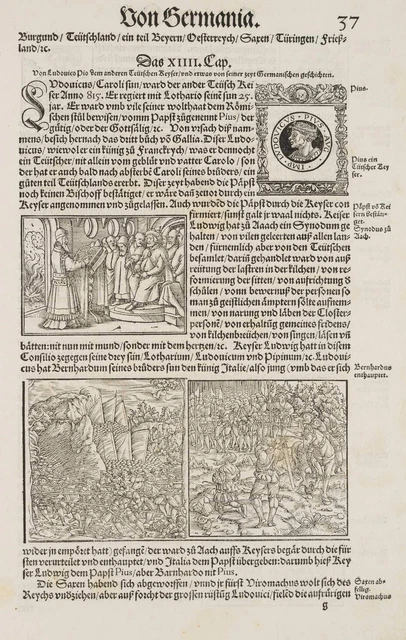 Von Germania. 37
Burgund/Teütschland/ein teil Beyern/Oesterreych/Saxen/Türingen/Frieß-
land/ꝛc.
Das XIIII. Cap.
Von Ludouico Pio dem anderen Teütschen Keyser/vnd etwas von seiner zeyt Germanischen geschichten.
LVdouicus/Caroli sun/ward der ander Teütsch Kei
ser Anno 815. Er regiert mit Lothario seinē sun 25.
jar. Er ward vmb vile seiner wolthaat dem Römi-
schen stůl bewisen/vomm Papst zůgenennt Pius/der
gütig/oder der Gottsälig/ꝛc. Von vrsach diß nam-
mens/besich hernach das dritt bůch vō Gallia. Diser Ludo-
uicus/wiewol er ein künig zů Franckrych/was er dennocht
ein Teütscher/nit allein vom geblüt vnd vatter Carolo/son
der hat er auch bald nach absterbē Caroli seines brůders/ein
gůten teil Teütschlands ererbt. Diser zeyt habend die Päpst
noch keinen Bischoff bestätiget/er wäre dañ zeuor durch ein
Keyser angenommen vnd zůgelassen. Auch wurdend die Päpst durch die Keyser con
firmiert/sunst galt jr waal nichts. Keiser
Ludwig hat zů Aaach ein Synodum ge
halten/von vilen geleerten auß allen lan-
den/fürnemlich aber von den Teütschen
besamlet/dariñ gehandlet ward von auß
reütung der lastren in der kilchen/von re-
formierung der sitten/von aufrichtung d
schůlen/vonn bewernuß der personen so
man zů geistlichen ämptern sölte aufnem-
men/von narung vnd läben der Closter-
personē/von erhaltūg gemeines fridens/
von kilchenbreüchen/von singen/läsen vñ
bätten: nit nun mit mund/sonder mit dem hertzen/ꝛc. Keyser Ludwig hatt in disem
Consilio zegegen seine drey sün/Lotharium/Ludouicum vnd Pipinum/ꝛc. Ludoui-
cus hat Bernhardum seines brůders sun den künig Italie/also jung (vmb das er sich
wider jn empört hatt) gefangē/der ward zů Aach auffs Keysers begär durch die für
sten verurteilet vnd enthauptet/vnd Italia dem Papst übergeben: darumb hieß Key
ser Ludwig dem Papst Pius/aber Barnhardo nit Pius.
Die Saxen habend sich abgeworffen/vnnd jr fürst Viromachus wolt sich des
Reychs vndziehen/aber auß forcht der grossen rüstūg Ludouici/fieled die aufrürigen
g
Pius.
IMP. LVDOVICVS PIVS AVG
Pius ein
Teütscher Key
ser.
Päpst vō Kei
sern bestän-
get.
Synodus zů
Aach.
Bernhardus
enthauptet.
Saxen ab-
fellig.
Viromachus